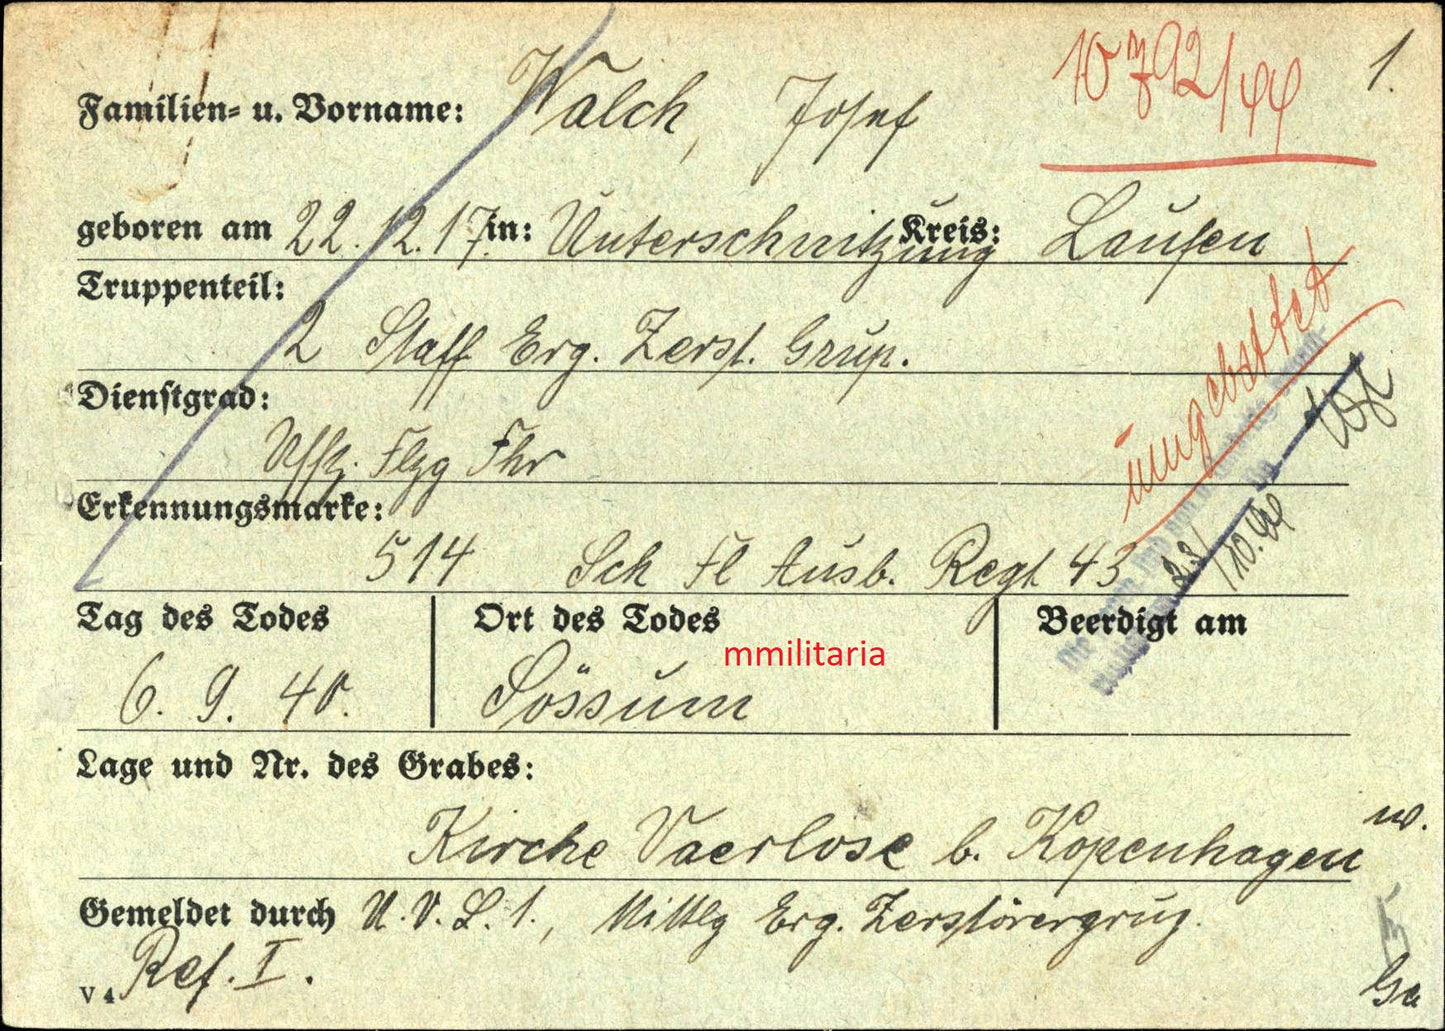 10792/44 1.
Familien- u. Vorname: Walch, Josef
geboren am 22.12.17. in: Unterschnitzing Kreis: Laufen
Truppenteil:
2 Staff Erg. Zerst. Grup.
Dienstgrad:
Uffz. Flzg Fhr
Erkennungsmarke:
514 Sch Fl Ausb. Regt 43
umgebettet
23/10.44
Tag des Todes Ort des Todes Beerdigt am
mmilitaria
6. 9. 40. Sössum
Lage und Nr. des Grabes:
w.
Kirche Vaerlose b. Kopenhagen
Gemeldet durch U.V.L.1., Mittlg Erg. Zerstörergrup.
Ref. I.
V 4